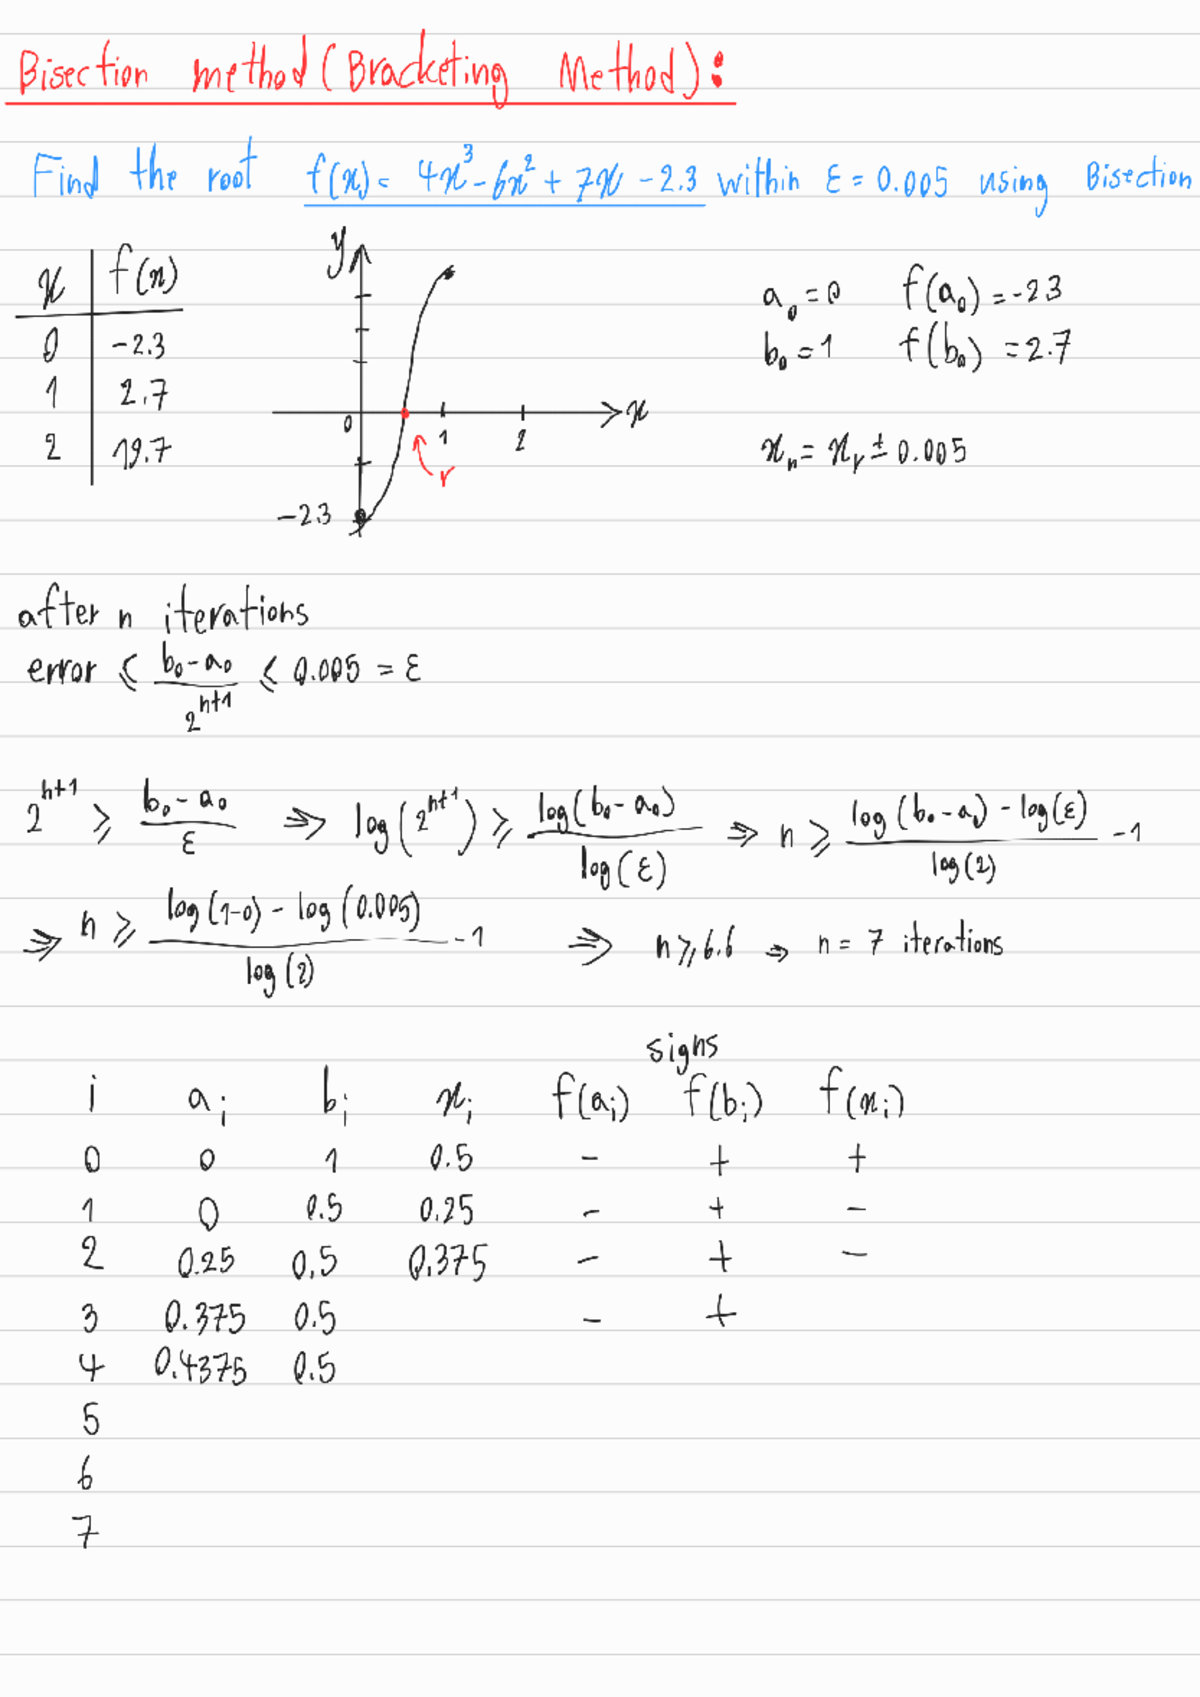 Bisection method (Bracketing Method):
Find the root f(x) = 4x³ - 6x² + 7x - 2.3 within ε = 0.005 using Bisection
x f(x)
0 -2.3
1 2.7
2 19.7
y
0 1 2 x
r
-2.3
a₀ = 0 f(a₀) = -2.3
b₀ = 1 f(b₀) = 2.7
xₙ = xᵣ ± 0.005
after n iterations
error ≤ (b₀ - a₀)/2ⁿ⁺¹ ≤ 0.005 = ε
2ⁿ⁺¹ ≥ (b₀ - a₀)/ε ⇒ log(2ⁿ⁺¹) ≥ log(b₀ - a₀)/log(ε) ⇒ n ≥ (log(b₀ - a₀) - log(ε))/log(2) - 1
⇒ n ≥ (log(1-0) - log(0.005))/log(2) - 1 ⇒ n ≥ 6.6 ⇒ n = 7 iterations
signs
i aᵢ bᵢ xᵢ f(aᵢ) f(bᵢ) f(xᵢ)
0 0 1 0.5 - + +
1 0 0.5 0.25 - + -
2 0.25 0.5 0.375 - + -
3 0.375 0.5 - +
4 0.4375 0.5
5
6
7